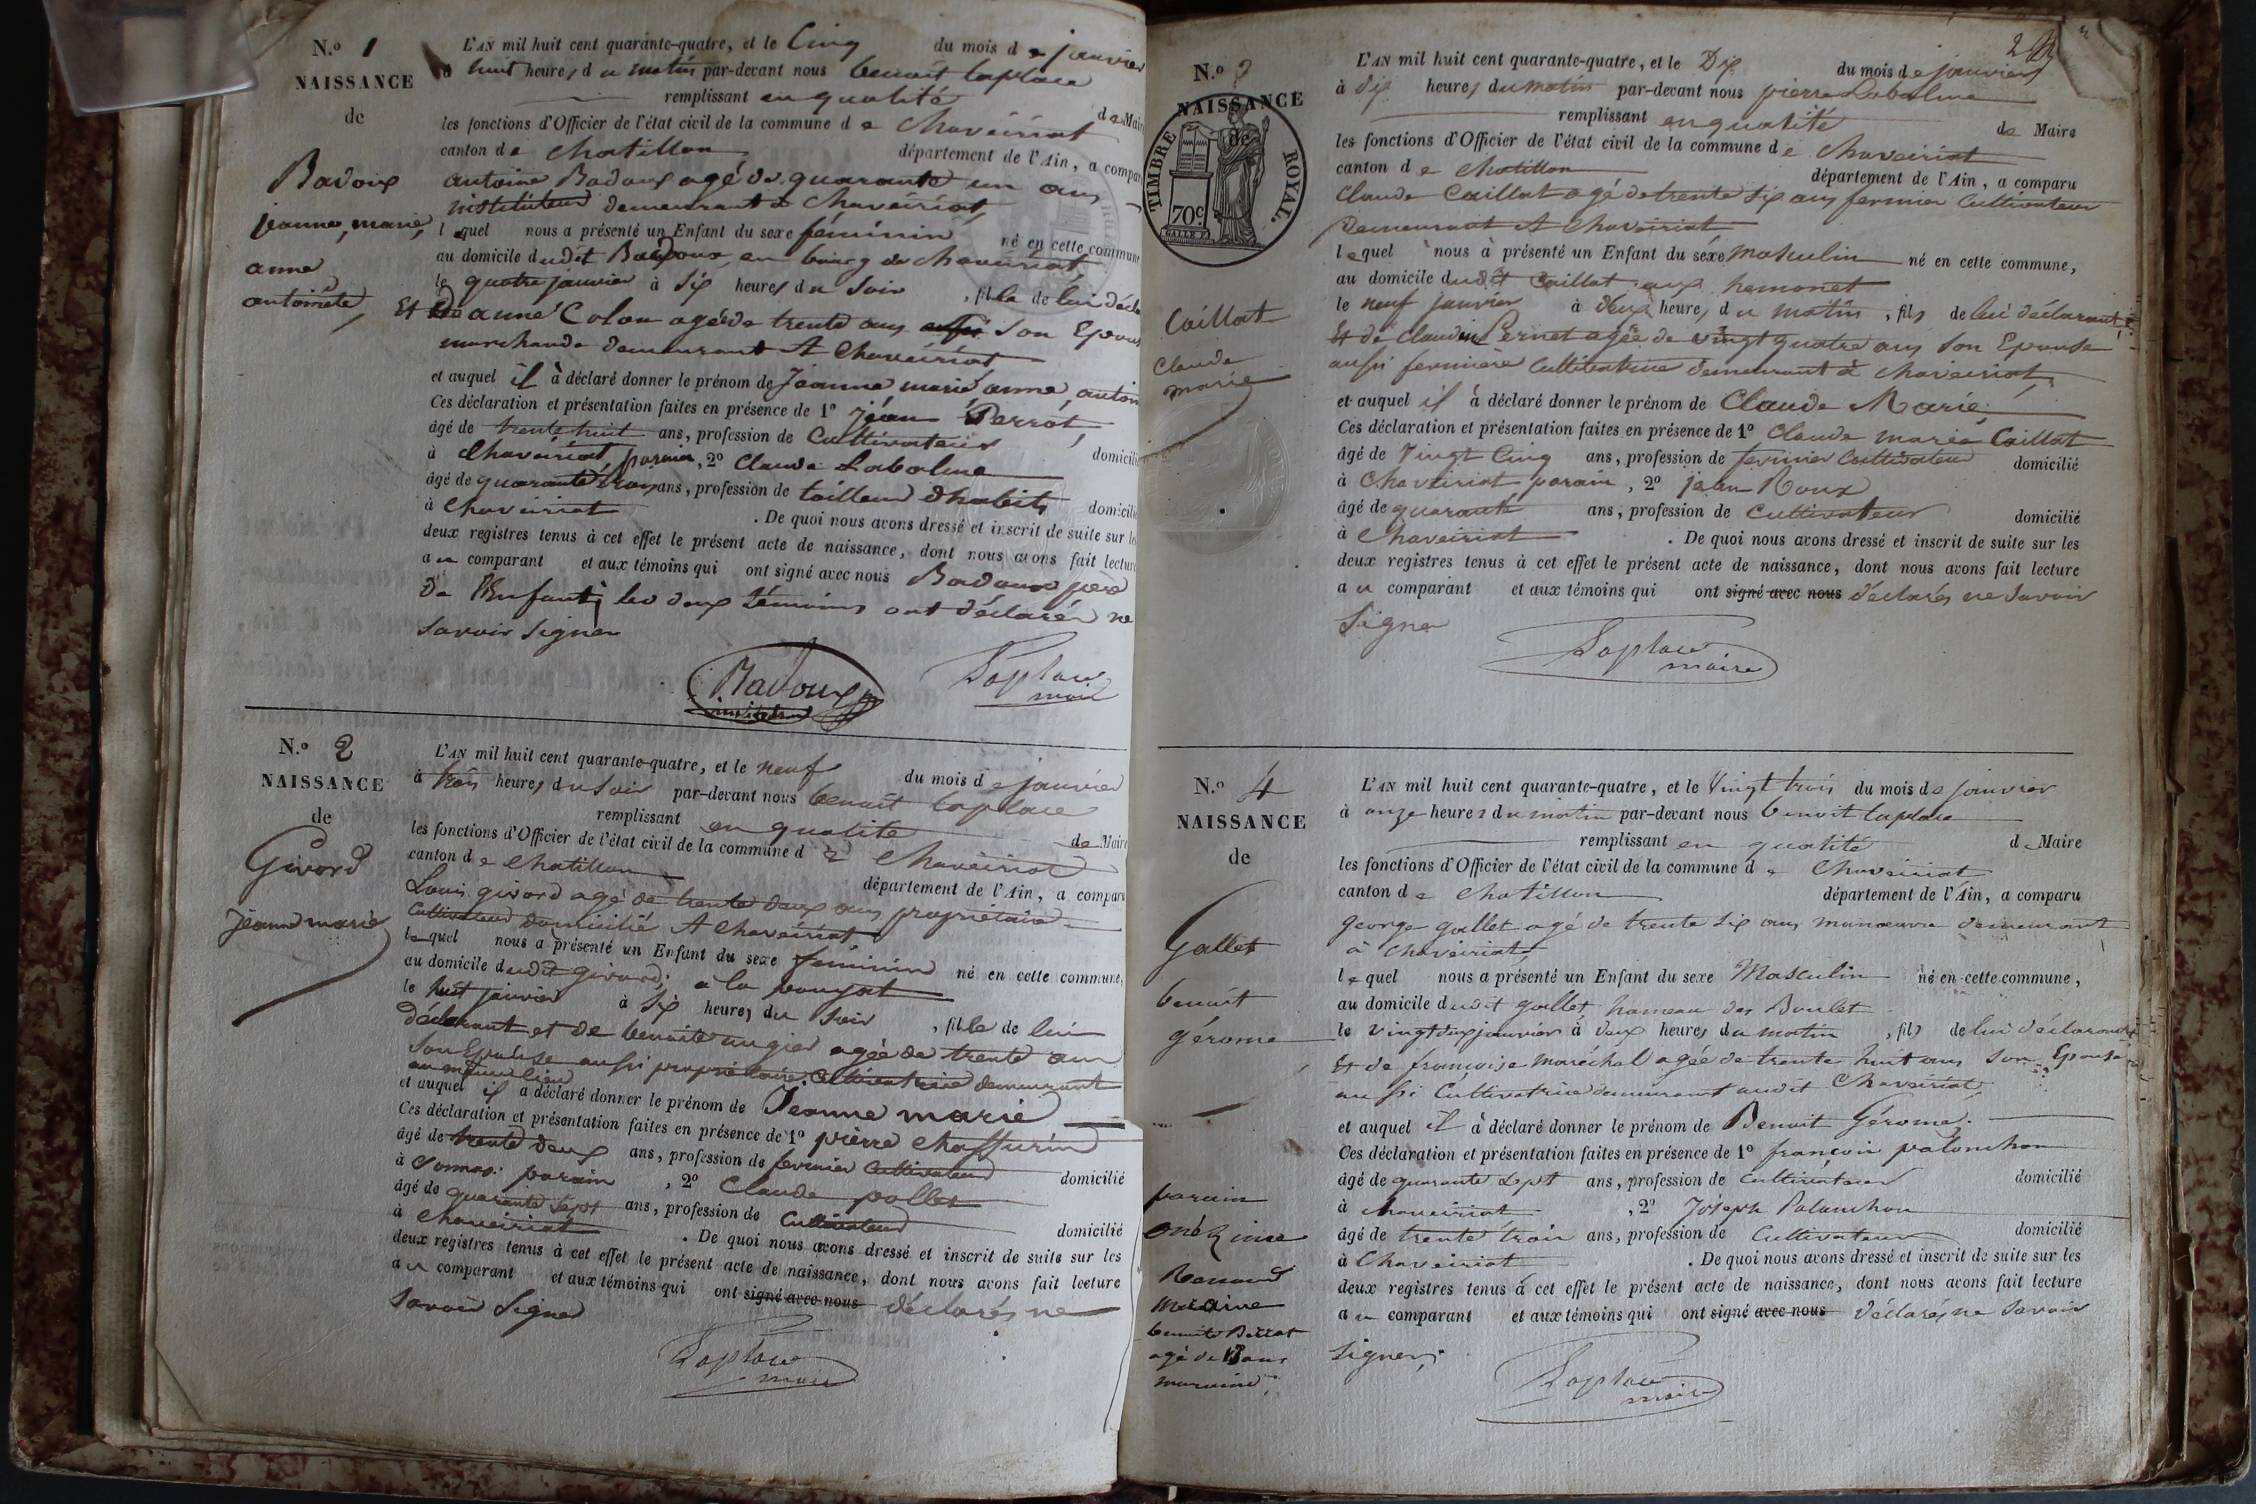 N.o 1
NAISSANCE
de
Badoux
jeanne, marie,
anne
antoinete
L'AN mil huit cent quarante-quatre, et le Cinq du mois de janvier
à huit heures du matin par-devant nous benoit laplace
remplissant en qualité de Maire
les fonctions d'Officier de l'état civil de la commune de Chaveiriat
canton de Chatillon département de l'Ain, a comparu
antoine Badoux agé de quarante un ans
instituteur demeurant a Chaveiriat,
lequel nous a présenté un Enfant du sexe féminin né en cette commune
au domicile dudit Badoux, au bourg de chaveiriat
le quatre janvier à six heures du soir, fille de lui décla
Et de anne Colon agée de trente ans son Epouse
marchande demeurant A Chaveiriat
et auquel il à déclaré donner le prénom de Jeanne marie anne, antoin
Ces déclaration et présentation faites en présence de 1o jean Perrot,
âgé de trente huit ans, profession de Cultivateur domicilié
à Chaveiriat parain, 2o Claude Labalme
âgé de quarante trois ans, profession de tailleur d'habits domicilié
à Chaveiriat. De quoi nous avons dressé et inscrit de suite sur les
deux registres tenus à cet effet le présent acte de naissance, dont nous avons fait lecture
au comparant et aux témoins qui ont signé avec nous Badoux père
De l'Enfant, les deux témoins ont déclarér ne
savoir signer
Badoux
instituteur
Laplace
maire
N.o 2
NAISSANCE
de
Givord
Jeanne marie
L'AN mil huit cent quarante-quatre, et le neuf du mois de janvier
à trois heures du soir par-devant nous benoit laplace
remplissant en qualité de Maire
les fonctions d'Officier de l'état civil de la commune de Chaveiriat
canton de Chatillon département de l'Ain, a comparu
Louis givord agé de trente deux ans propriétaire
Cultivateur domicilié A Chaveiriat
lequel nous a présenté un Enfant du sexe féminin né en cette commune,
au domicile dudit givord; a la
le huit janvier à six heures du soir, fille de lui
déclarant et de benoite augier agée de trente ans
son Epouse aussi propriétaire Cultivatrice demeurant
au même lieu
et auquel il a déclaré donner le prénom de Jeanne marie
Ces déclaration et présentation faites en présence de 1o pierre Chaffurin
âgé de trente deux ans, profession de fermier Cultivateur domicilié
à parain, 2o Claude pollet
âgé de quarante sept ans, profession de Cultivateur domicilié
à Chaveiriat. De quoi nous avons dressé et inscrit de suite sur les
deux registres tenus à cet effet le présent acte de naissance, dont nous avons fait lecture
au comparant et aux témoins qui ont signé avec nous déclarés ne
savoir signer
Laplace
maire
2
N.o 3
NAISSANCE
de
TIMBRE ROYAL.
70c
Caillat
Claude
marie
L'AN mil huit cent quarante-quatre, et le Dix du mois de janvier
à dix heures du matin par-devant nous pierre Labalme
remplissant en qualité de Maire
les fonctions d'Officier de l'état civil de la commune de Chaveiriat
canton de Chatillon département de l'Ain, a comparu
Claude Caillat agé de trente six ans fermier Cultivateur
Demeurant A Chaveiriat
lequel nous à présenté un Enfant du sexe masculin né en cette commune,
au domicile dudit Caillat aux hemonet
le neuf janvier à deux heures du matin, fils de lui déclarant,
Et de Claudine Pernet agée de vingt quatre ans son Epouse
aussi fermière Cultivatrice demeurant à chaveiriat,
et auquel il à déclaré donner le prénom de Claude Marie
Ces déclaration et présentation faites en présence de 1o Claude marie Caillat
âgé de Vingt Cinq ans, profession de fermier Cultivateur domicilié
à Chaveiriat parain, 2o jean Roux
âgé de quarante ans, profession de Cultivateur domicilié
à Chaveiriat. De quoi nous avons dressé et inscrit de suite sur les
deux registres tenus à cet effet le présent acte de naissance, dont nous avons fait lecture
au comparant et aux témoins qui ont signé avec nous déclarés ne savoir
Signer
Laplace
maire
N.o 4
NAISSANCE
de
Gallet
benoit
gérome
parain
onézime
Renaud
maraine
benoite Perrat
agé de ans
maraine
L'AN mil huit cent quarante-quatre, et le Vingt trois du mois de janvier
à onze heures du matin par-devant nous benoit laplace
remplissant en qualité de Maire
les fonctions d'Officier de l'état civil de la commune de Chaveiriat
canton de Chatillon département de l'Ain, a comparu
george gallet agé de trente six ans manœuvre demeurant
à Chaveiriat,
lequel nous a présenté un Enfant du sexe Masculin né en cette commune,
au domicile dudit gallet hameau des Boulet
le vingt deux janvier à deux heures du matin, fils de lui déclarant
Et de françoise maréchal agée de trente huit ans son Epouse
aussi Cultivatrice demeurant audit Chaveiriat,
et auquel il à déclaré donner le prénom de Benoit Gérome.
Ces déclaration et présentation faites en présence de 1o françois palanchon
âgé de quarante sept ans, profession de Cultivateur domicilié
à Chaveiriat, 2o Joseph Palanchon
âgé de trente trois ans, profession de Cultivateur domicilié
à Chaveiriat. De quoi nous avons dressé et inscrit de suite sur les
deux registres tenus à cet effet le présent acte de naissance, dont nous avons fait lecture
au comparant et aux témoins qui ont signé avec nous déclarés ne savoir
signer,
Laplace
maire